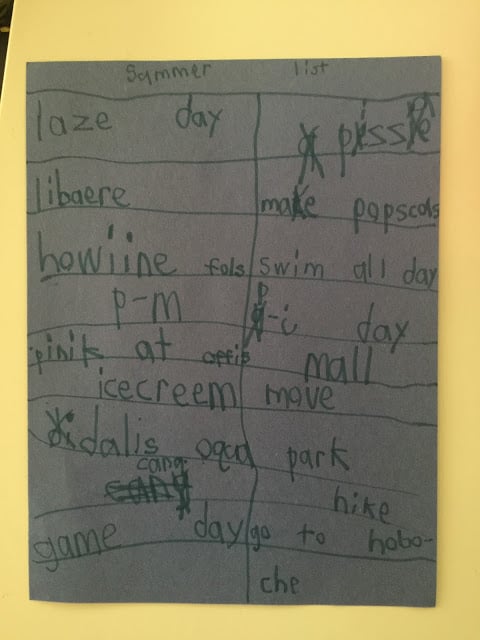 Sammer list
laze day
libaere
howiine fols
p-m
pinik at offis
icecreem
dalis oqua
cang
game day
make popscols
swim all day
p-i day
mall
move
park
hike
go to hobo-
che